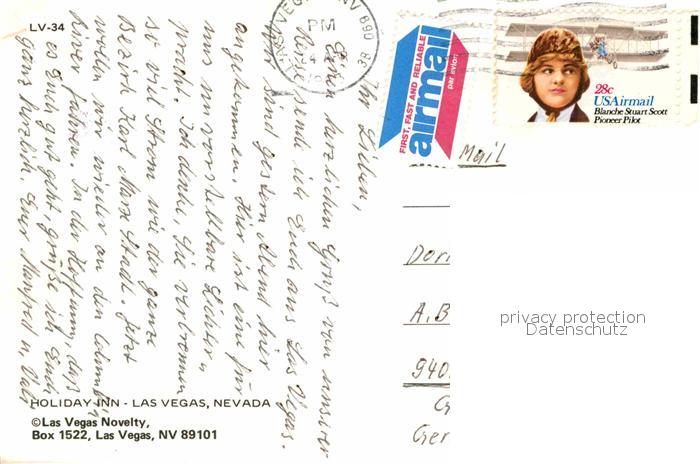 LV-34
LAS VEGAS, NV 890
PM
Ihr Lieben,
einen herzlichen Gruß von unserer
sende ich Euch aus Las Vegas.
sind gestern Abend hier
angekommen. Hier ist eine für
uns unvorstellbare Lichter
Ich denke, Sie verbrennen
Strom wie der ganze
Bezirk Karl Marx Stadt. Jetzt
wollen wir wieder an den
fahren. In der Hoffnung, daß
es Euch gut geht, grüße ich Euch
ganz herzlich, Euer Manfred u.
FIRST, FAST AND RELIABLE
airmail
par avion
28c
USAirmail
Blanche Stuart Scott
Pioneer Pilot
Mail
A.B
940
Ger
privacy protection
Datenschutz
HOLIDAY INN - LAS VEGAS, NEVADA
©Las Vegas Novelty,
Box 1522, Las Vegas, NV 89101